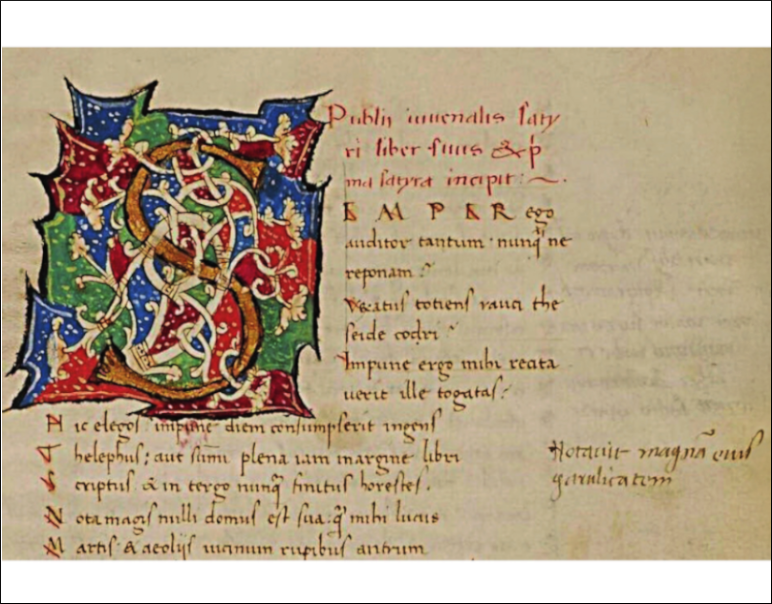 Publii iuvenalis saty
ri liber sivus & p̄
ma satyra incipit:~.
SEMPER ego
auditor tantum · nunq̃ ne
reponam?
Vexatus totiens rauci the
seide codri?
Impune ergo mihi recita
uerit ille togatas?
Hic elegos? impune diem consumpserit ingens
Thelephus; aut summi plena iam margine libri
Scriptus & in tergo nunq̃ finitus horestes.
Nota magis nulli domus est sua: q̃ mihi lucus
Martis & aeolijs uicinum rupibus antrum
Notauit magnā eius
garulicatem